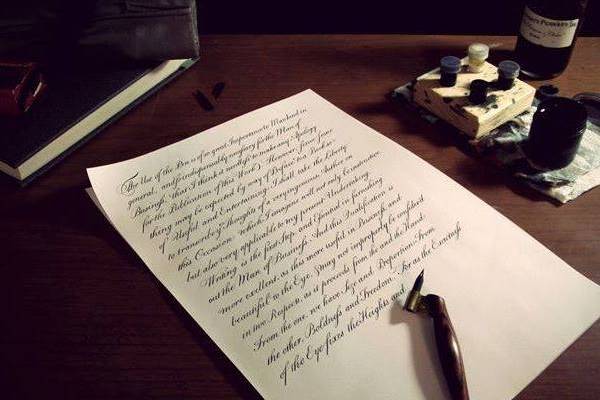 The Use of the Pen is of so great Importance to Mankind in
general, and so indispensably necessary for the Man of
Business, that I think it needless to make any Apology
for the Publication of this Work. However, since some
thing may be expected by way of Preface to a Book
of Useful and Entertaining, I shall take the Liberty
to transcribe the Thoughts of a very ingenious Author on
this Occasion which I presume will not only be instructive
but also very applicable to my present Undertaking.
Writing is the first Step, and Essential in furnishing
out the Man of Business. And this Qualification is
more excellent, as 'tis more useful in Business; and
beautiful to the Eye; & may not improperly be consider'd
in two Respects, as it proceeds from the Eye and the Hand:
From the one, we have Size and Proportion: From
the other, Boldness and Freedom. For as the Exactness
of the Eye fixes the Heights and